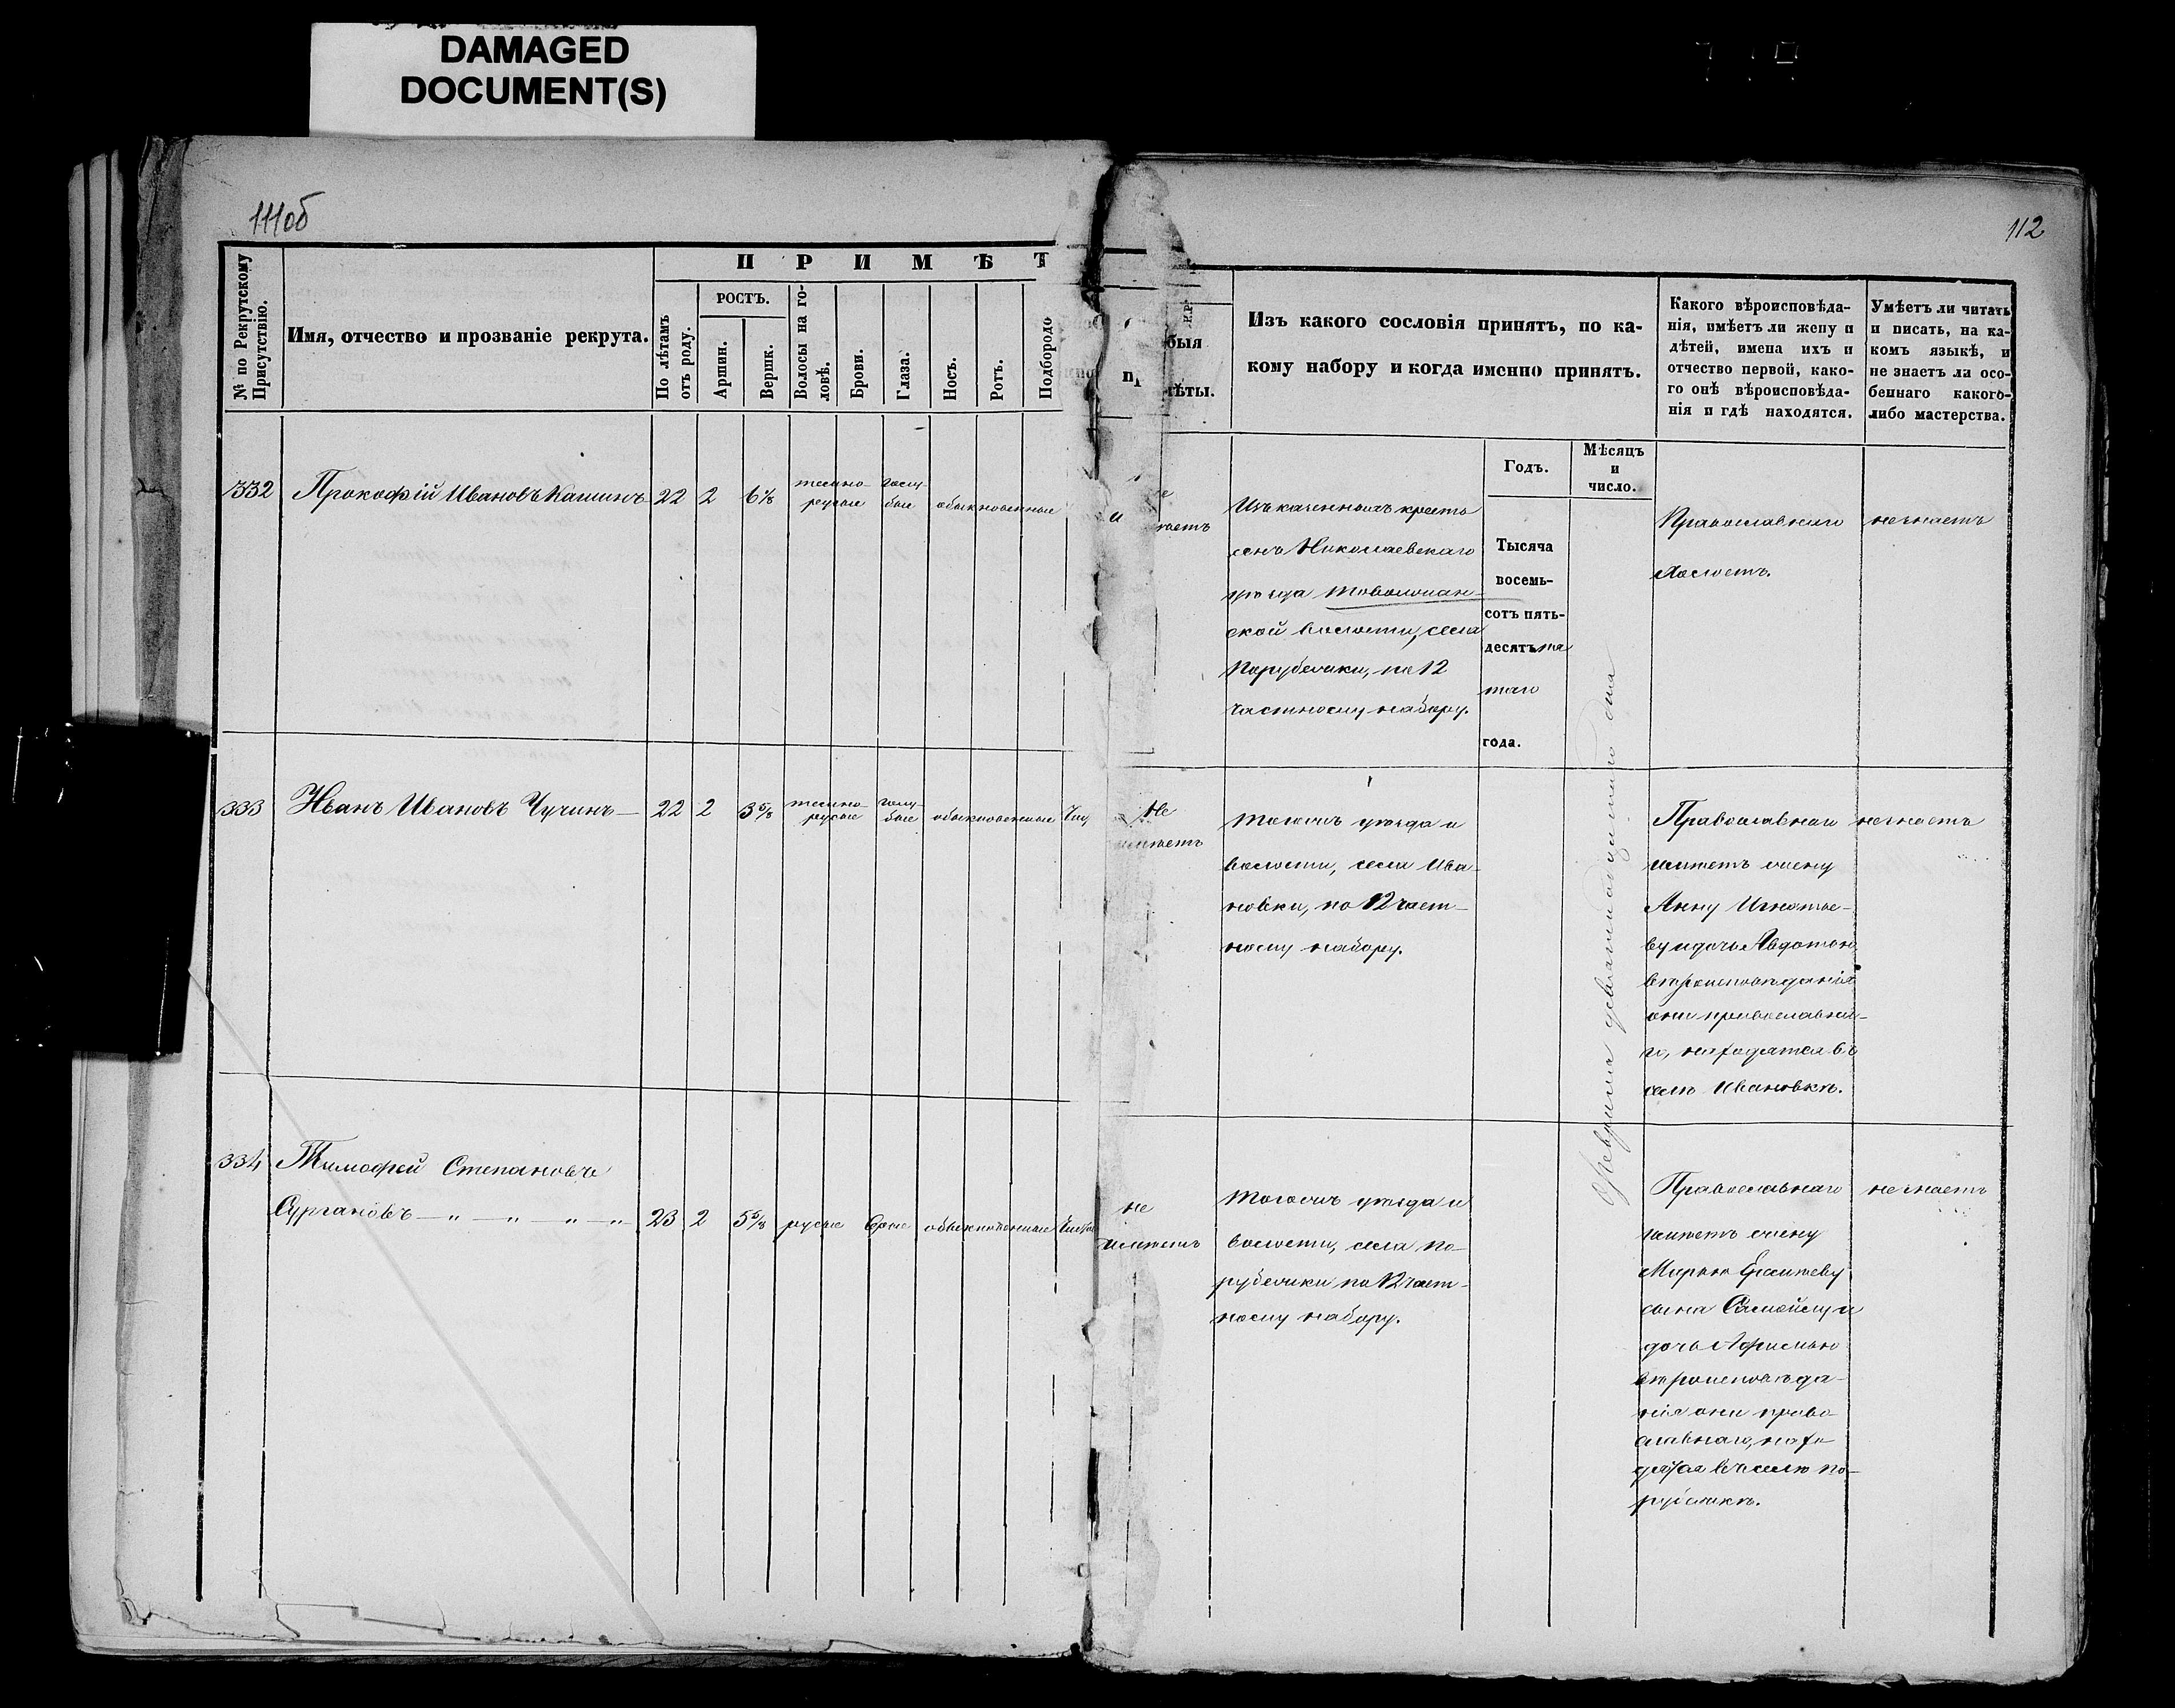 DAMAGED
DOCUMENT(S)
111об
112
№ по Рекрутскому
Присутствію.
Имя, отчество и прозваніе рекрута.
П Р И М Ѣ Т
По лѣтамъ
отъ роду.
РОСТЪ.
Аршин.
Вершк.
Волосы на го-
ловѣ.
Брови.
Глаза.
Носъ.
Ротъ.
Подбородо
быя
ѣты.
Изъ какого сословія принятъ, по ка-
кому набору и когда именно принятъ.
Какого вѣроисповѣда-
нія, имѣетъ ли жену и
дѣтей, имена ихъ и
отчество первой, како-
го онѣ вѣроисповѣда-
нія и гдѣ находятся.
Умѣетъ ли читать
и писать, на ка-
комъ языкѣ, и
не знаетъ ли осо-
беннаго какого-
либо мастерства.
Годъ.
Мѣсяцъ
и
число.
332 Прокофій Ивановъ Кашинъ 22 2 6⅛
темно-
русые
голу-
бые
обыкновенные
Изъ казенныхъ кресть
янъ Николаевскаго
уѣзда
ской волости, села
Порубежки, по 12
частному набору.
Тысяча
восемь-
сотъ пять-
десятъ пя
таго
года.
Православнаго
Холостъ.
незнаетъ
333 Иванъ Ивановъ Чучинъ 22 2 3⅝
темно-
русые
голу-
бые
обыкновенные
Не
имѣетъ
Тогожъ уѣзда и
волости, села Ива-
новки, по 12 част-
ному набору.
Февраля
дня
Православнаго
имѣетъ жену
Анну Игнатье-
ву и дочь Авдотью
вѣроисповѣданія
они православна-
го, находятся въ
селѣ Ивановкѣ.
незнаетъ
334 Тимофей Степановъ
Сургановъ — " — " — " — " 23 2 5⅝ русые обыкновенные
не
имѣетъ
Тогожъ уѣзда и
волости, села По-
рубежки по 12 част-
ному набору.
Православнаго
имѣетъ жену
Марью
сына Самойлу и
дочь Афимью
вѣроисповѣда-
нія они право-
славнаго, нахо-
дятся въ селѣ По-
рубежкѣ.
незнаетъ